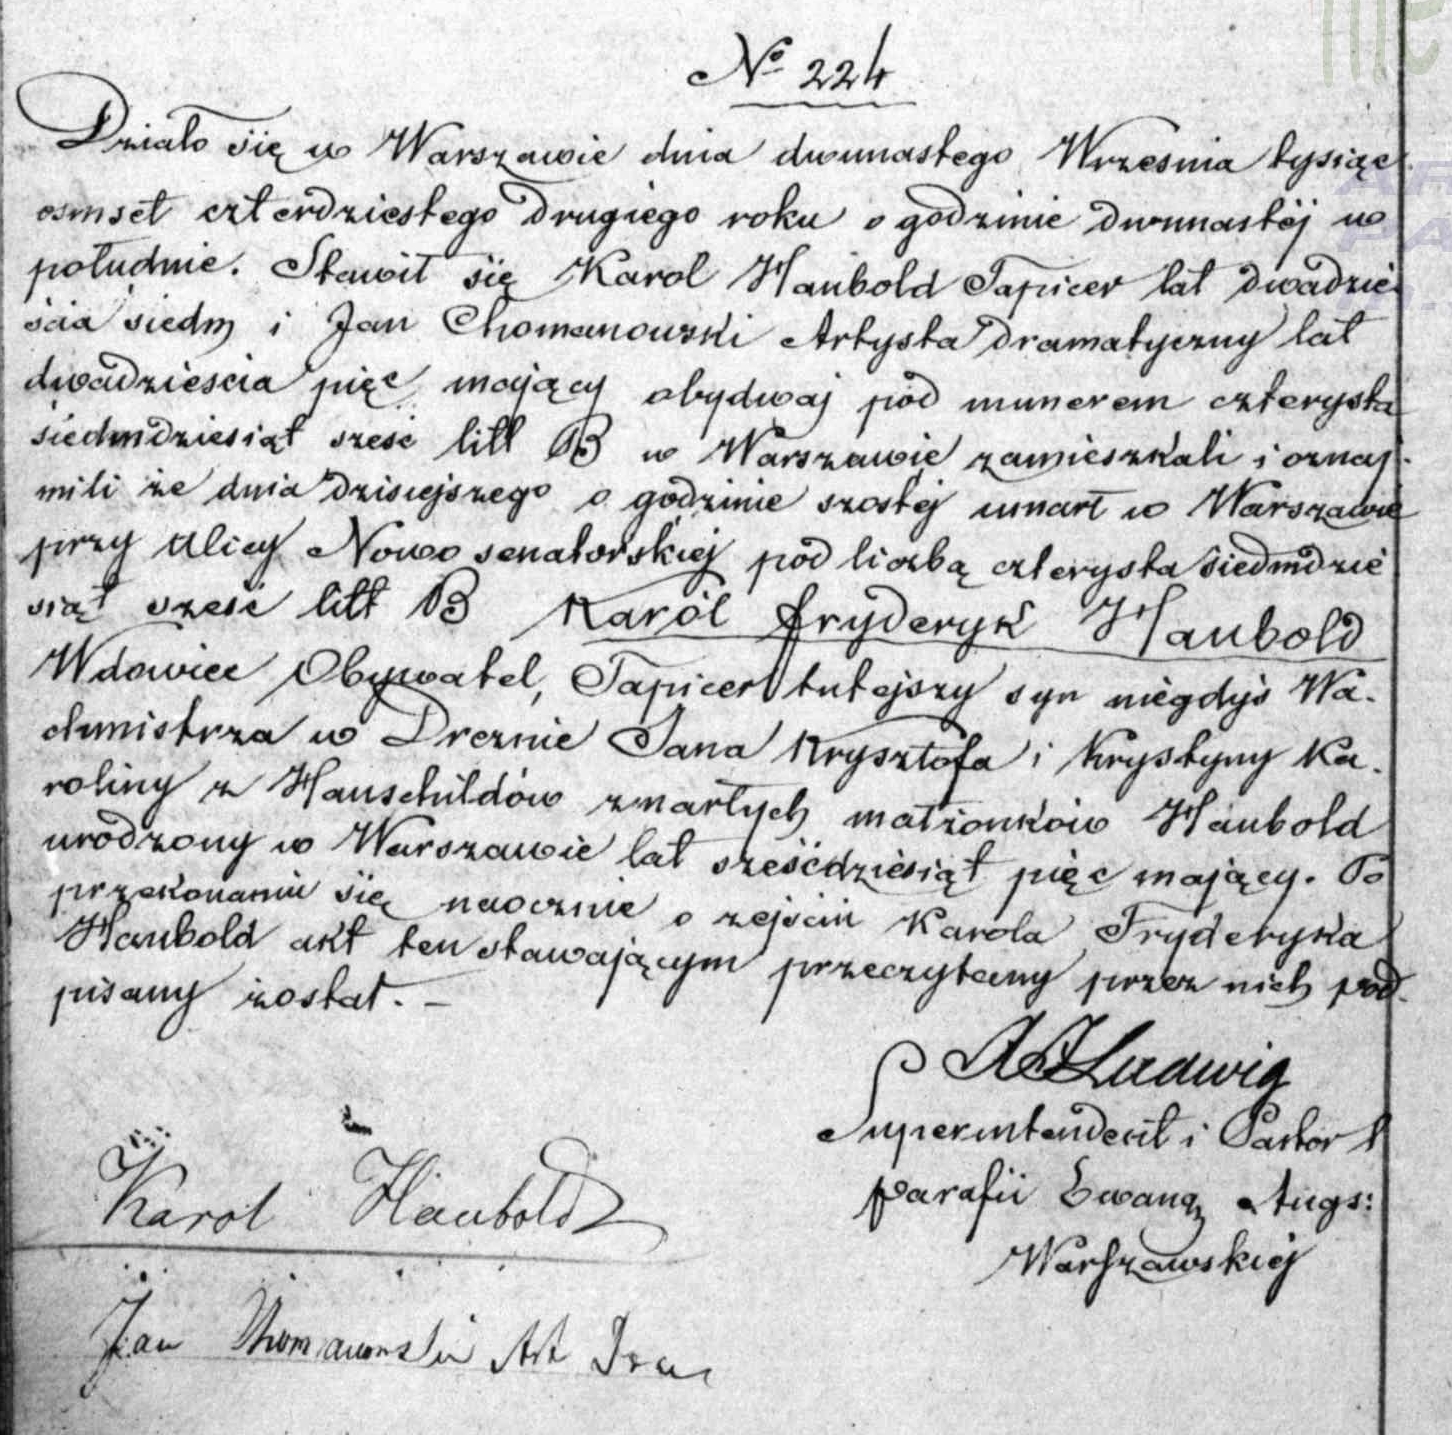 No 224
Działo się w Warszawie dnia dwunastego Wrzesnia tysiąc
osmset czterdziestego drugiego roku o godzinie dwunastéj w
południe. Stawił się Karol Haubold Tapicer lat dwadzie
ścia siedm i Jan Chomanowski Artysta dramatyczny lat
dwadzieścia pięć mający obydwaj pod numerem czterysta
siedmdziesiąt sześć litt B w Warszawie zamieszkali i oznaj-
mili że dnia dzisiejszego o godzinie szostéj umarł w Warszawie
przy Ulicy Nowo senatorskiéj pod liczbą czterysta siedmdzie
siąt sześć litt B Karól Fryderyk Haubold
Wdowiec Obywatel, Tapicer tutejszy syn niegdyś Wa-
chmistrza w Dreznie Jana Krysztofa i Krystyny Ka-
roliny z Hauschildów zmarłych małżonków Haubold
urodzony w Warszawie lat sześćdziesiąt pięć mający. Po
przekonaniu się naocznie o zejściu Karola Fryderyka
Haubold akt ten stawającym przeczytany przez nich pod-
pisany został. –
Ludwig
Superintendent i Pastor
parafii Ewang Augs:
Warszawskiéj
Karol Haubold
Jan Chomanowski Art Dra